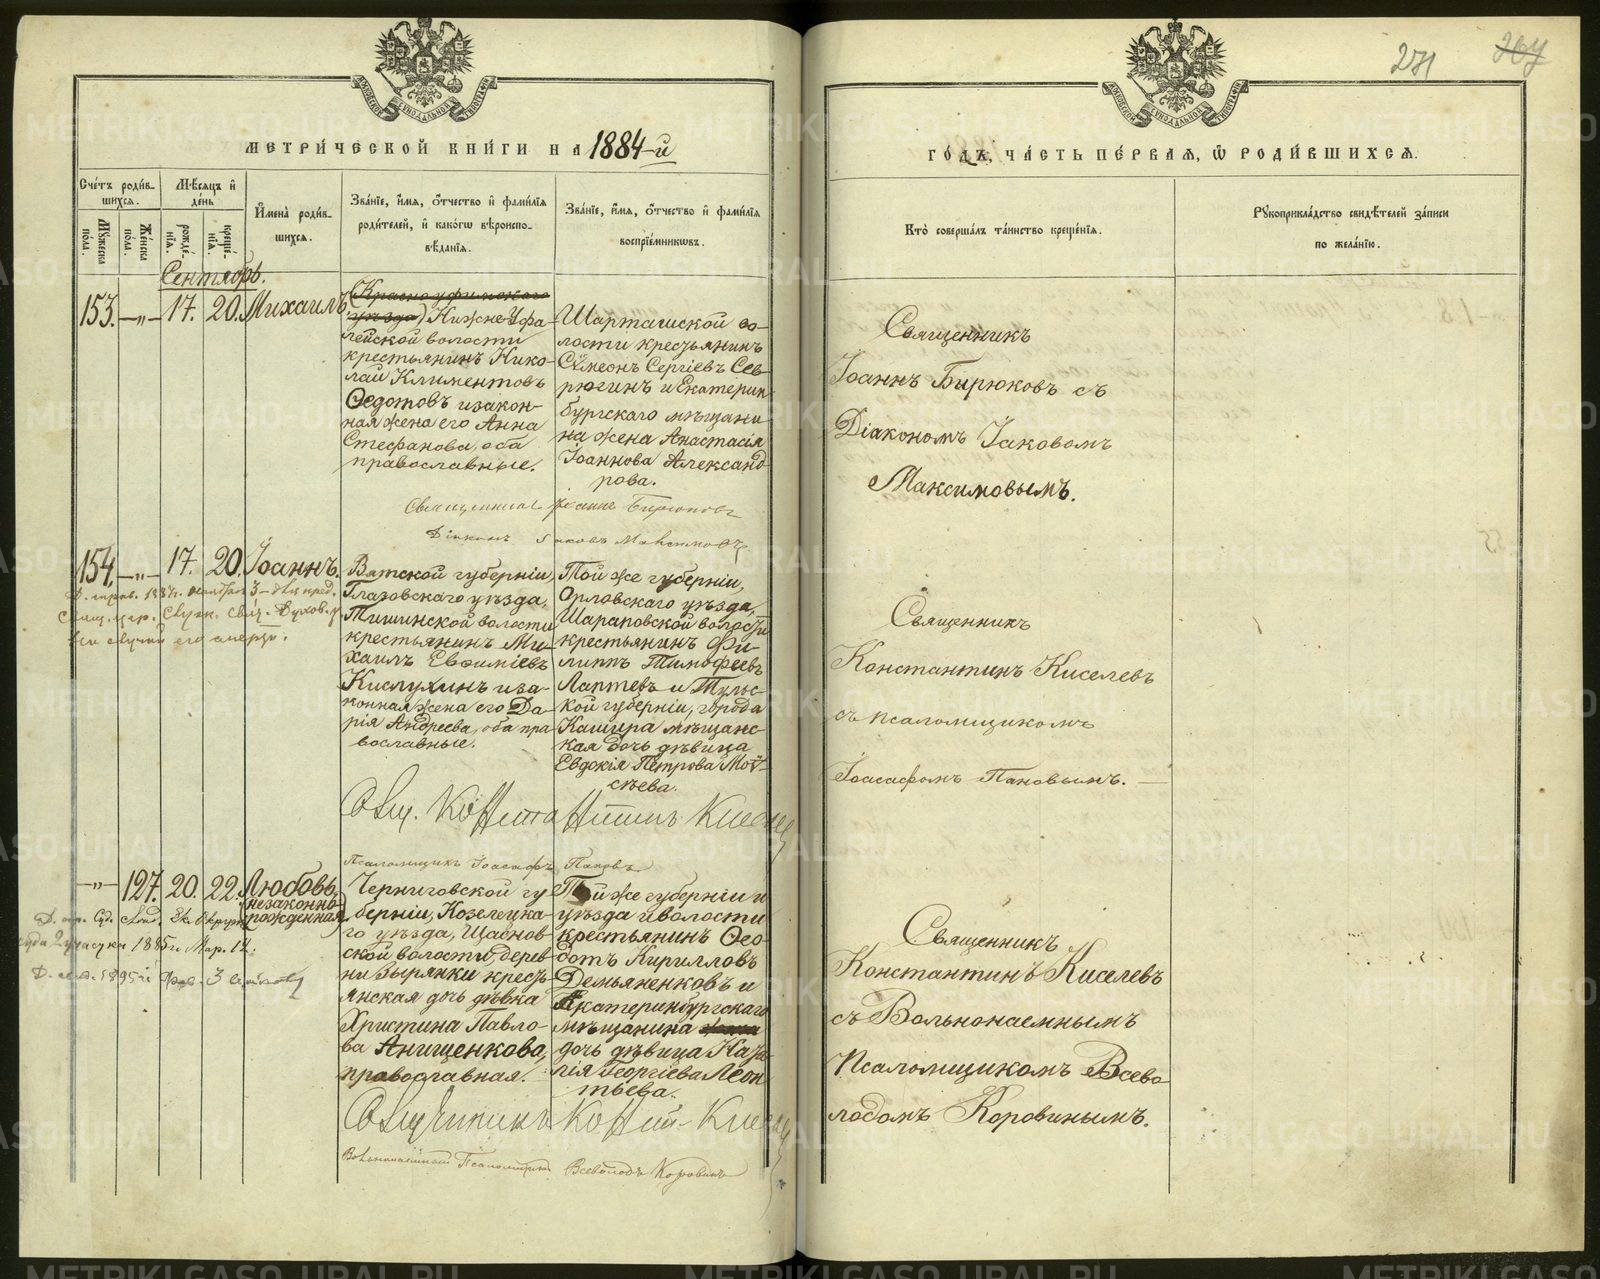 МЕТРИ́ЧЕСКОЙ КНИ́ГИ НА 1884-й
Сче́тъ роди́в-
шихся.
Мѣ́сяцъ и҆
де́нь
И҆мена̀ роди́в-
шихся.
Зва́нїе, и҆́мя, ѻ҆́тчество и҆ фами́лїя
роди́телей, и҆ како́гѡ вѣроиспо-
вѣ́данїя.
Зва́нїе, и҆́мя, ѻ҆́тчество и҆ фами́лїя
воспрїе́мникѡвъ.
Му́жеска
по́ла.
Же́нска
по́ла.
рожде́-
нїя.
креще́-
нїя.
Сентябрь.
153. —„— 17. 20. Михаилъ
(Красноуфимскаго
уѣзда) Нижне-Уфа-
лейской волости
крестьянинъ Нико-
лай Климентовъ
Ѳедотовъ и закон-
ная жена его Анна
Стефанова, оба
православные.
Шарташской во-
лости крестьянинъ
Сѵмеонъ Сергіевъ Сев-
рюгинъ и Екатерин-
бургскаго мѣщани-
на жена Анастасія
Іоаннова Александ-
рова.
Священникъ Іоаннъ Бирюковъ
Діаконъ Іаковъ Максимовъ
154. —„— 17. 20. Іоаннъ.
Вятской губерніи,
Глазовскаго уѣзда,
Тишинской волости
крестьянинъ Ми-
хаилъ Евѳиміевъ
Кислухинъ и за-
конная жена его Да-
рія Андреева, оба пра-
вославные.
Той же губерніи,
Орловскаго уѣзда,
Шараповской волости
крестьянинъ Фи-
липпъ Тимофеевъ
Лаптевъ и Туль-
кой губерніи, города
Кашира мѣщанс-
кая дочь дѣвица
Евдокія Петрова Мой-
сѣева.
Свящ. Константинъ Киселевъ
Псаломщикъ Іоасафъ Пановъ
—„— 127. 20. 22. Любовь
(незаконно-
рожденная)
Черниговской гу-
берніи, Козелецка-
го уѣзда, Щаснов-
ской волости, дерев-
ни Бырянки кресть-
янская дочь дѣвка
Христина Павло-
ва Анищенкова,
православная.
Той же губерніи и
уѣзда и волости
крестьянинъ Ѳео-
дотъ Кирилловъ
Демьяненковъ и
Екатеринбургскаго
мѣщанина жена
дочь дѣвица Ната-
лія Георгіева Леон-
тьева.
Священникъ Конст. Киселевъ
Вольнонаемный Псаломщикъ Всеволодъ Коровинъ
271 267
ГО́ДЪ, ЧА́СТЬ ПЕ́РВАЯ, Ѡ҆ РОДИ́ВШИХСЯ.
Кто̀ соверша́лъ та́инство креще́нїя.
Рꙋкоприкла́дство свидѣ́телей за́писи
по жела́нїю.
Священникъ
Іоаннъ Бирюковъ съ
Діакономъ Іаковомъ
Максимовымъ.
Священникъ
Константинъ Киселевъ
съ псаломщикомъ
Іоасафомъ Пановымъ. —
Священникъ
Константинъ Киселевъ
съ Вольнонаемнымъ
Псаломщикомъ Всево-
лодомъ Коровинымъ.